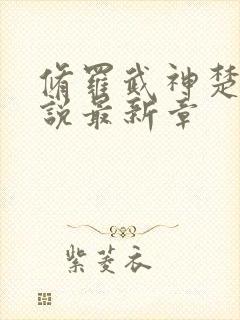 脩羅武神楚
說最新章
紫菱衣